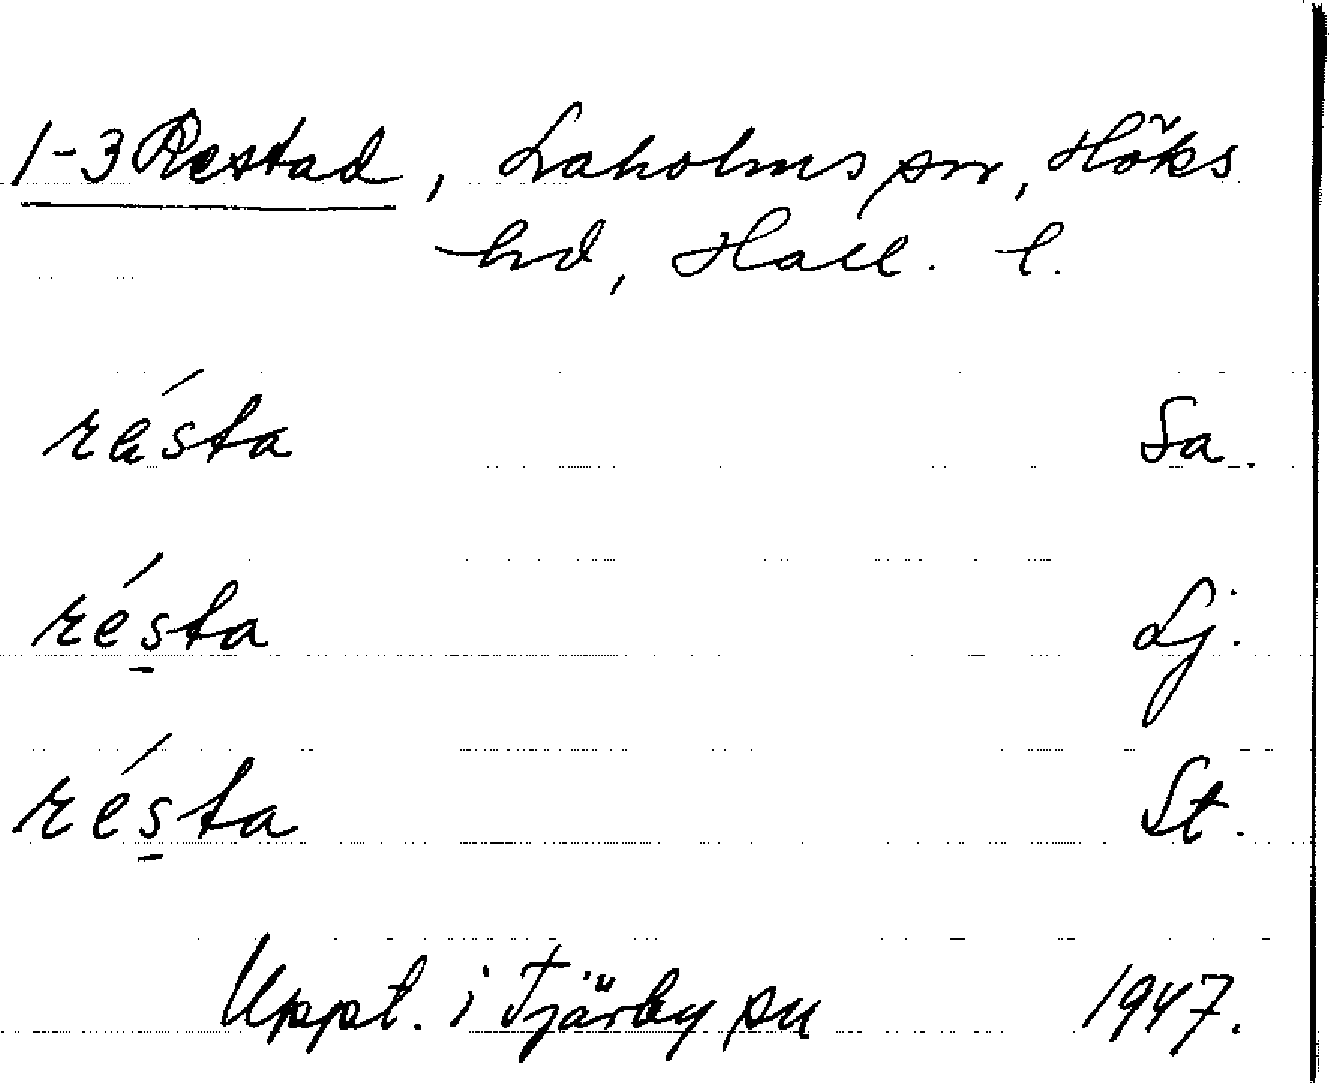 1-3 Restad, Laholms sn, Höks
hd, Hall. l.
résta Sa.
résta Lj.
résta St.
Uppt. i Tjärby sn 1947.